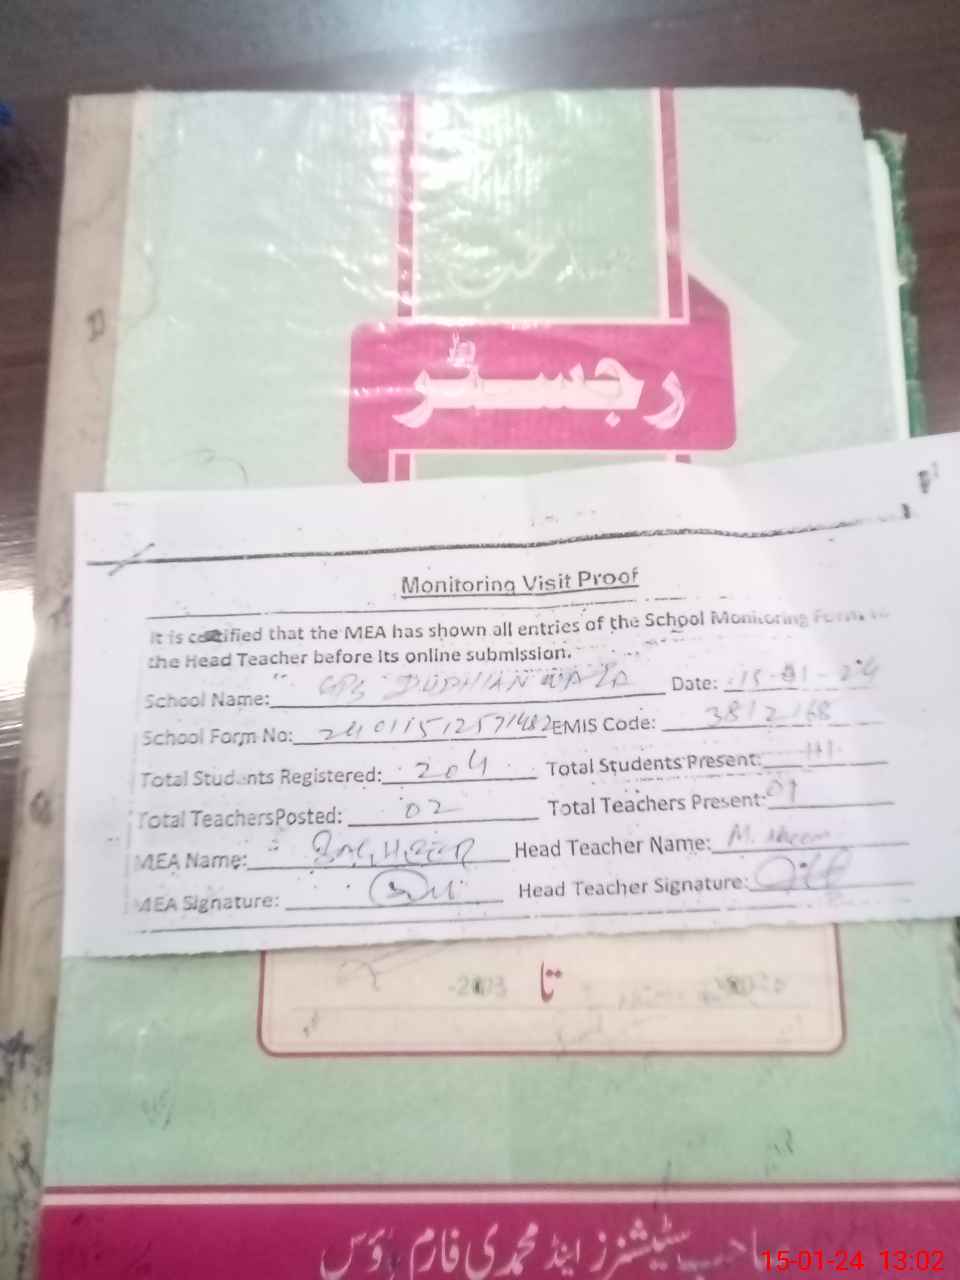 رجسٹر
Monitoring Visit Proof
It is certified that the MEA has shown all entries of the School Monitoring Form to
the Head Teacher before its online submission.
School Name: GPS DUDHIANWALA Date: 15-01-24
School Form No: 2401151257482 EMIS Code: 3812168
Total Students Registered: 204 Total Students Present: 111
Total TeachersPosted: 02 Total Teachers Present: 01
MEA Name: Head Teacher Name: M. Naeem
MEA Signature: Head Teacher Signature:
تا
صاحب سٹیشنرز اینڈ محمدی فارم ہاؤس
15-01-24 13:02